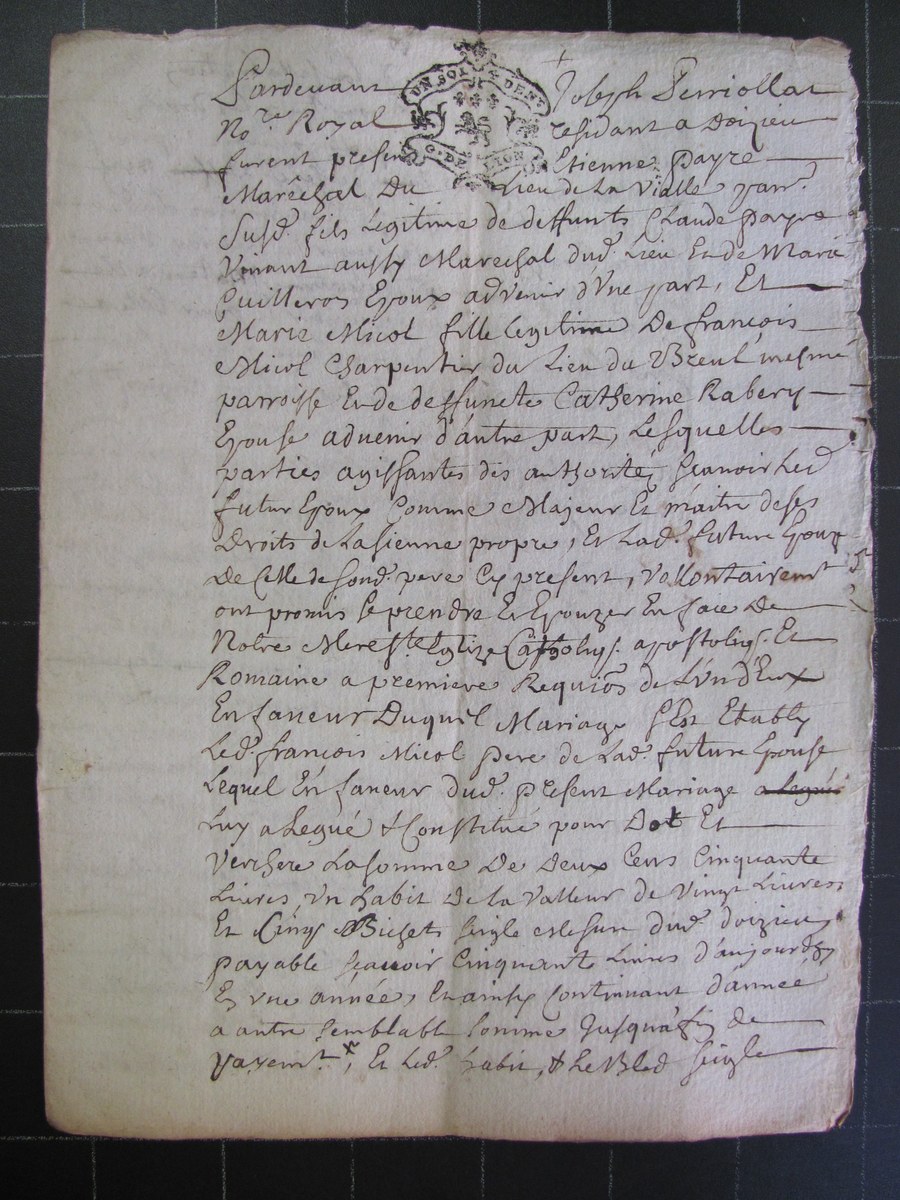 Pardevant Joseph Perriollat
No.re Royal residant a Doizieu
furent presens Etienne Payre
UN SOL 4 DENI
G. DE LION
Maréchal Du Lieu de La Vialle parr.
Susd. fils Legitime de deffunts Claude Payre
Vivant aussy Marechal dud. Lieu Et de Marie
Guilleron Epoux advenir d'Vne part, Et
Marie Micol fille legitime De francois
Micol Charpentier du Lieu du Breul mesme
parroisse Et de deffuncte Catherine Rabery
Epouse advenir d'autre part, Lesquelles
parties agissantes des authorités scavoir Led.
futur Epoux Comme Majeur Et maitre de ses
Droits de La sienne propre, Et Lad. future Epouze
De Celle de sond. pere Cy present, Vollontairemt
ont promis se prendre Et Epouzer En face De
Notre Mere Ste Eglize Catholiq. apostoliq. Et
Romaine a premiere Requions de L'Vn d'Eux
En faveur Duquel Mariage s'Est Etably
Led. francois Micol pere de Lad. future Epouse
Lequel En faveur dud. present Mariage a legué
luy a Legué & Constitué pour Dot Et
Verchere La somme De Deux Cens Cinquante
Livres, Vn habit De la Valleur de Vingt Livres
Et Cinq Bichets seigle Mesure dud. doizieu
payable scavoir Cinquante Livres d'aujourdhy
En vne année, Et ainsy Continuant d'année
a autre semblable somme Jusqu'a fin de
payemt., Et Led. habit, & Le Bled seigle